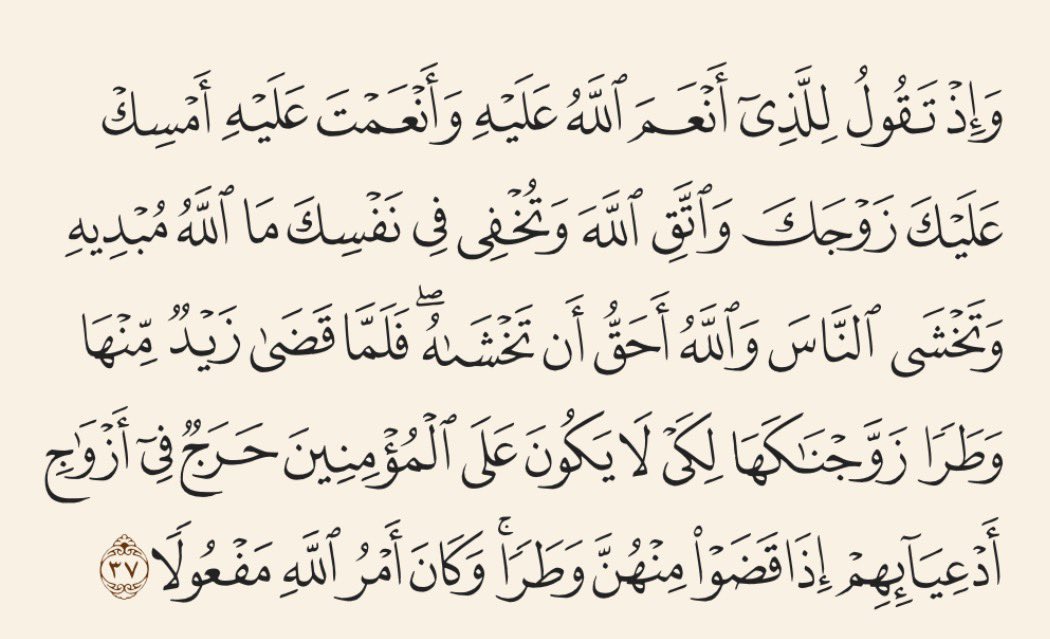 وَإِذْ تَقُولُ لِلَّذِىٓ أَنْعَمَ ٱللَّهُ عَلَيْهِ وَأَنْعَمْتَ عَلَيْهِ أَمْسِكْ
عَلَيْكَ زَوْجَكَ وَٱتَّقِ ٱللَّهَ وَتُخْفِى فِى نَفْسِكَ مَا ٱللَّهُ مُبْدِيهِ
وَتَخْشَى ٱلنَّاسَ وَٱللَّهُ أَحَقُّ أَن تَخْشَىٰهُ ۖ فَلَمَّا قَضَىٰ زَيْدٌ مِّنْهَا
وَطَرًا زَوَّجْنَـٰكَهَا لِكَىْ لَا يَكُونَ عَلَى ٱلْمُؤْمِنِينَ حَرَجٌ فِىٓ أَزْوَٰجِ
أَدْعِيَآئِهِمْ إِذَا قَضَوْا۟ مِنْهُنَّ وَطَرًا ۚ وَكَانَ أَمْرُ ٱللَّهِ مَفْعُولًا ٣٧